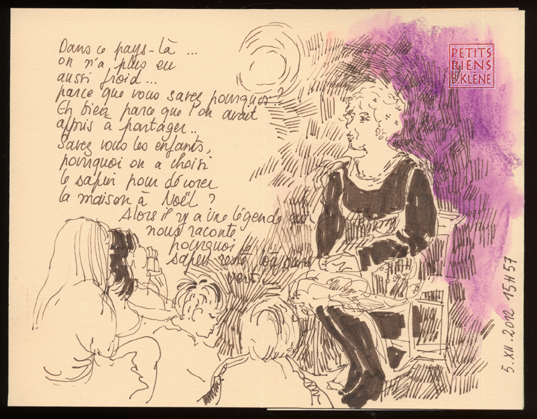 Dans ce pays-là ...
on n'a plus eu
aussi froid...
parce que vous savez pourquoi ?
Eh bien parce que l'on avait
appris à partager..
Savez vous les enfants,
pourquoi on a choisi
le sapin pour décorer
la maison à Noël ?
Alors il y a une légende qui
nous raconte
pourquoi le
sapin reste toujours
vert...
PETITS
RIENS
D.KLÈNE
5.XII.2012 15H57